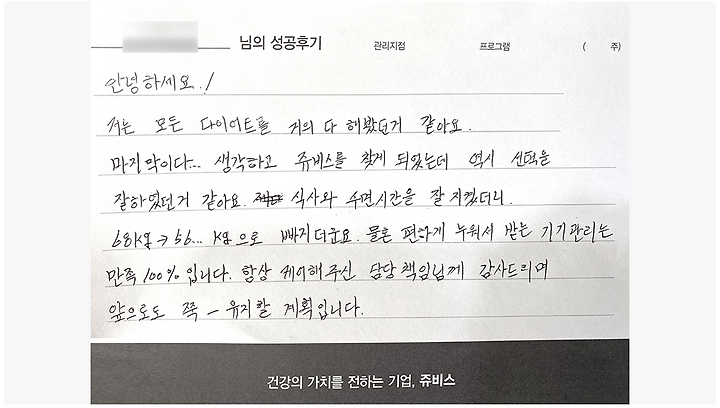 님의 성공후기 관리지점 프로그램 ( 주)
안녕하세요!
저는 모든 다이어트를 거의 다 해봤던거 같아요.
마지막이다... 생각하고 쥬비스를 찾게 되었는데 역시 선택을
잘하였던거 같아요. 식사와 수면시간을 잘 지켰더니.
68kg→56... kg으로 빠지더군요. 물론 편하게 누워서 받는 기기관리는
만족 100%입니다. 항상 케어해주신 담당 책임님께 감사드리며
앞으로도 쭉 - 유지할 계획입니다.
건강의 가치를 전하는 기업, 쥬비스